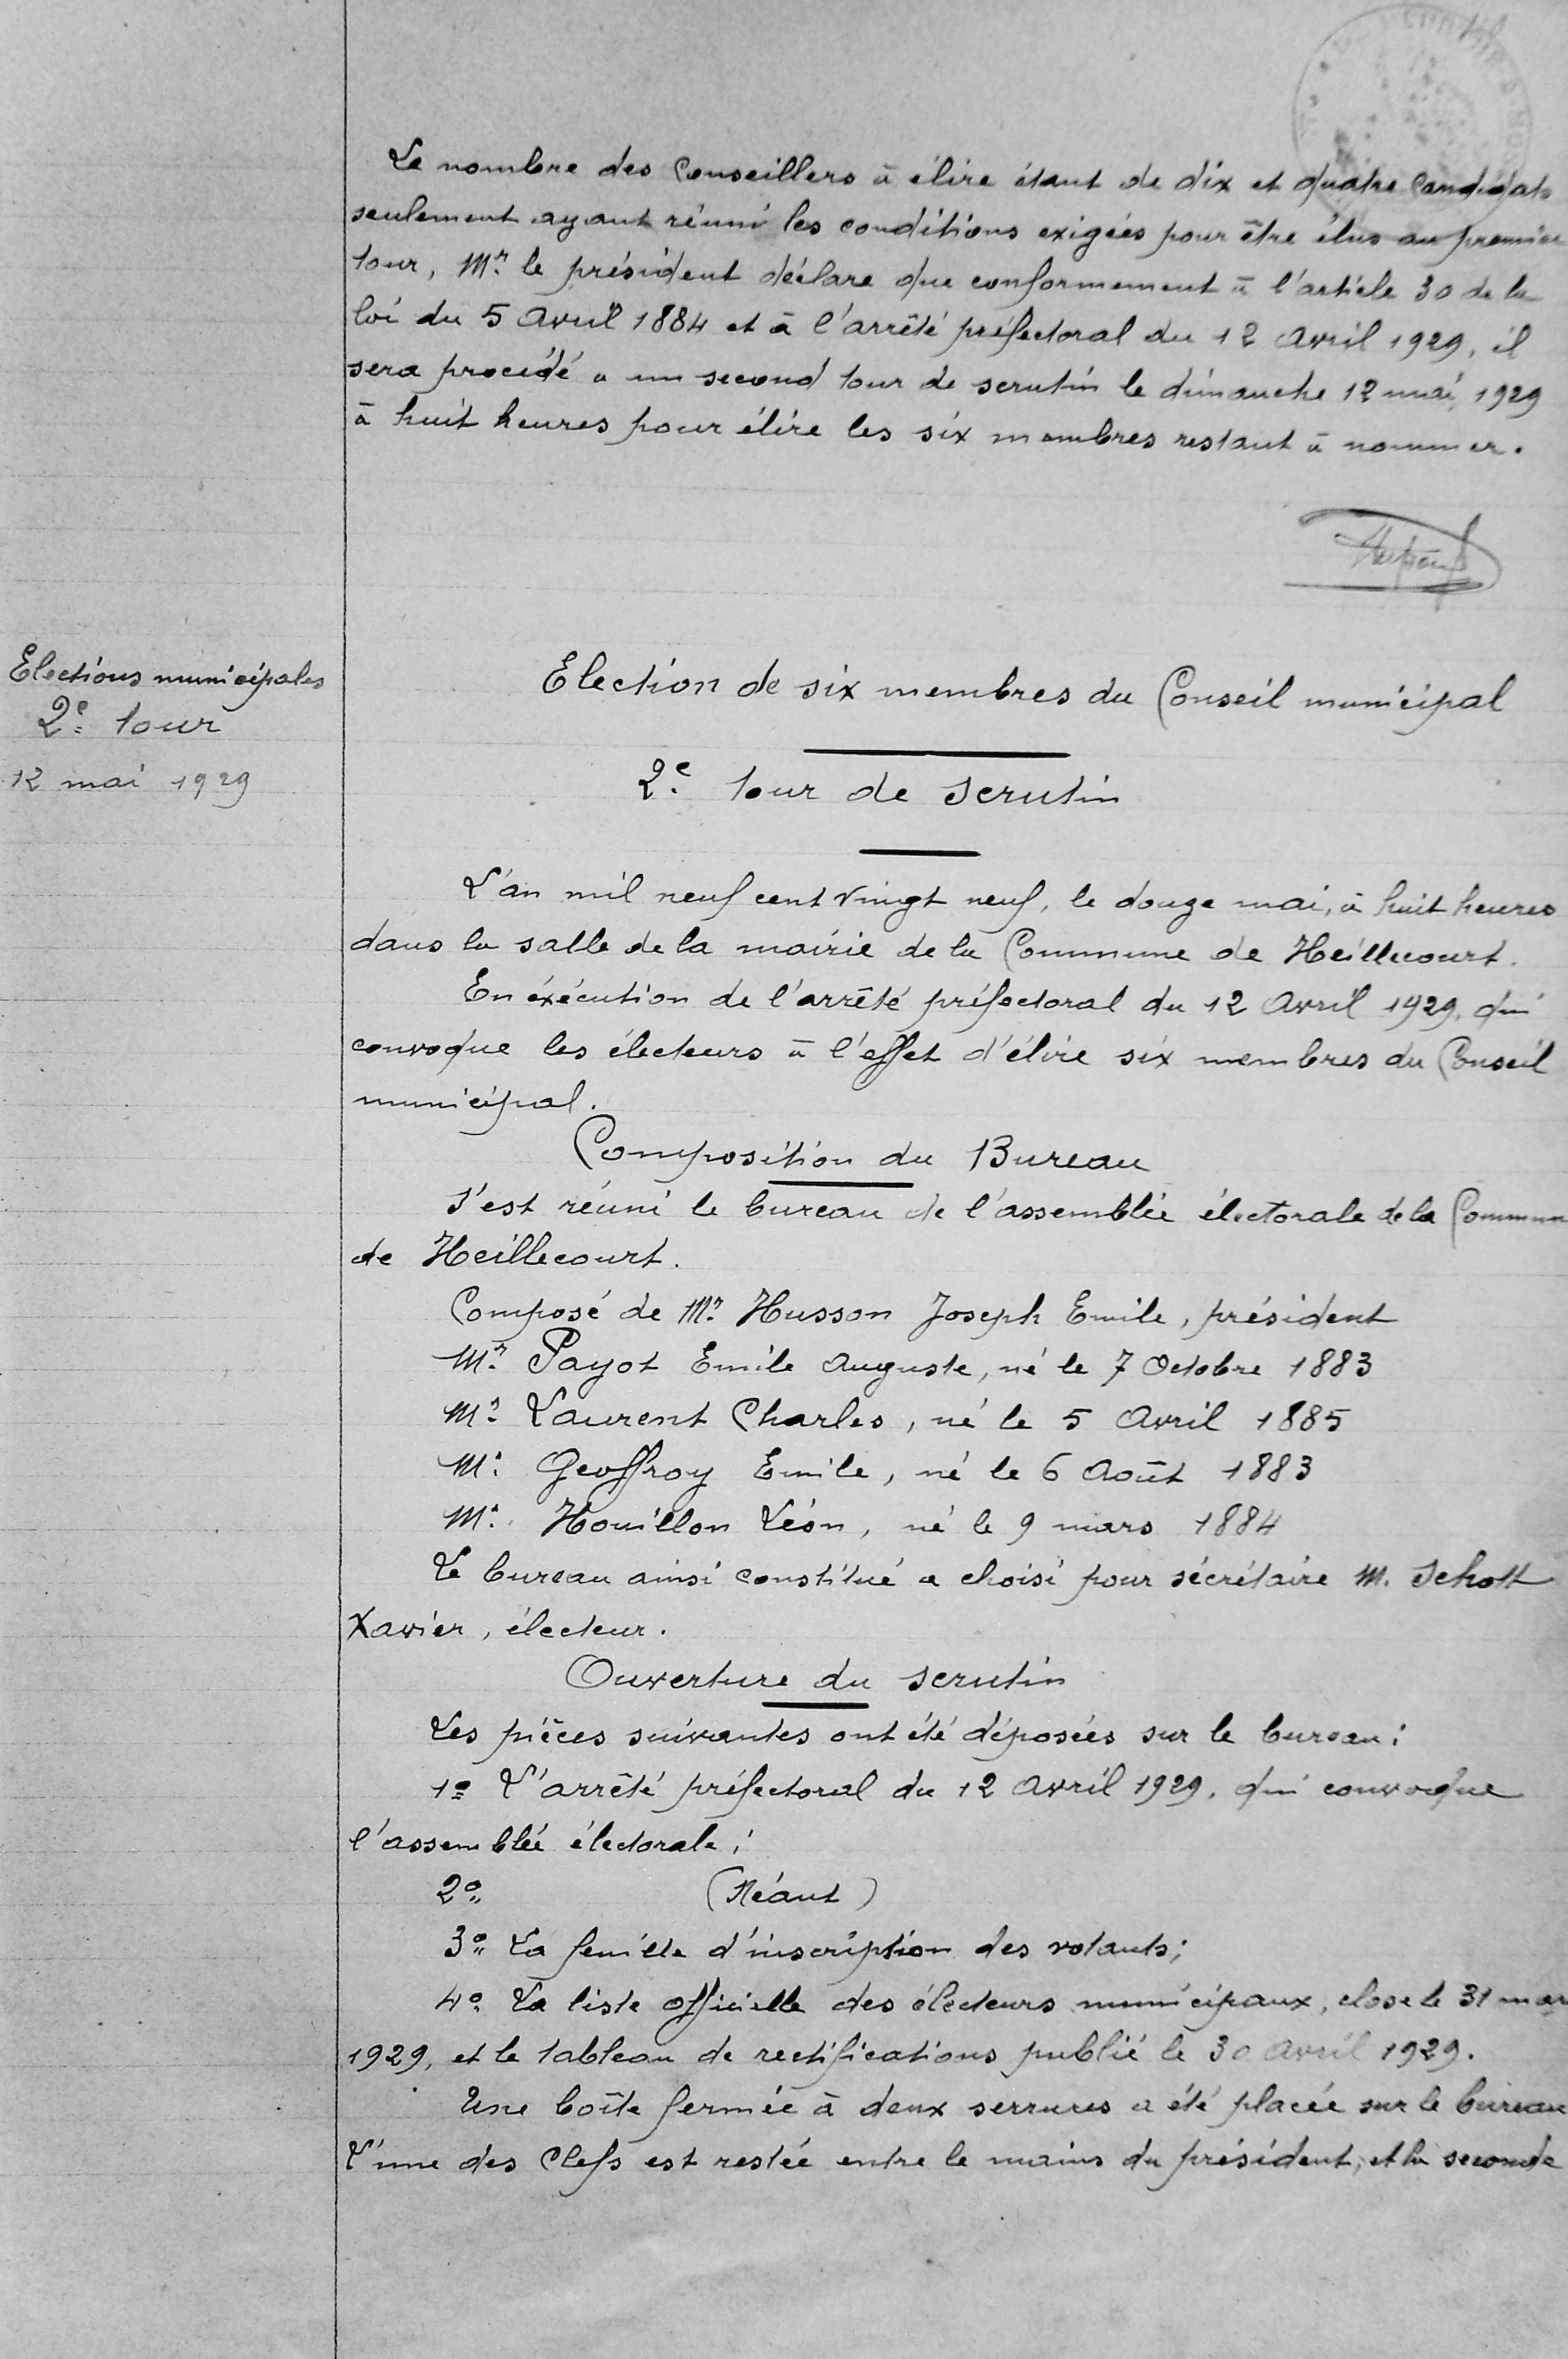 Le nombre des Conseillers à élire étant de dix et quatre Candidats
seulement ayant réuni les conditions exigées pour être élus au premier
tour, Mr. le président déclare que conformement à l'article 30 de la
loi du 5 Avril 1884 et à l'arrêté préfectoral du 12 Avril 1929, il
sera procédé a un second tour de scrutin le dimanche 12 mai 1929
à huit heures pour élire les six membres restant à nommer.
Elections municipales
2e tour
12 mai 1929
Election de six membres du Conseil municipal
2e tour de Scrutin
L'an mil neuf cent vingt neuf, le douze mai, à huit heures
dans la salle de la mairie de la Commune de Heillecourt.
En éxécution de l'arrêté préfectoral du 12 Avril 1929, qui
convoque les électeurs à l'effet d'élire six membres du Conseil
municipal.
Composition du Bureau
S'est réuni le bureau de l'assemblée électorale de la Commune
de Heillecourt.
Composé de Mr. Husson Joseph Emile, président
Mr. Payot Emile Auguste, né le 7 Octobre 1883
Mr. Laurent Charles, né le 5 Avril 1885
Mr. Geoffroy Emile, né le 6 Août 1883
Mr. Houillon Léon, né le 9 mars 1884
Le bureau ainsi constitué a choisi pour sécrétaire M. Schott
Xavier, électeur.
Ouverture du scrutin
Les pièces suivantes ont été déposées sur le bureau:
1o L'arrêté préfectoral du 12 Avril 1929, qui convoque
l'assemblée électorale;
2o (Néant)
3o La feuille d'inscription des votants;
4o La liste officielle des électeurs municipaux, close le 31 mar
1929, et le tableau de rectifications publié le 30 Avril 1929.
Une boîte fermée à deux serrures a été placée sur le bureau
L'une des Clefs est restée entre le mains du président, et la seconde